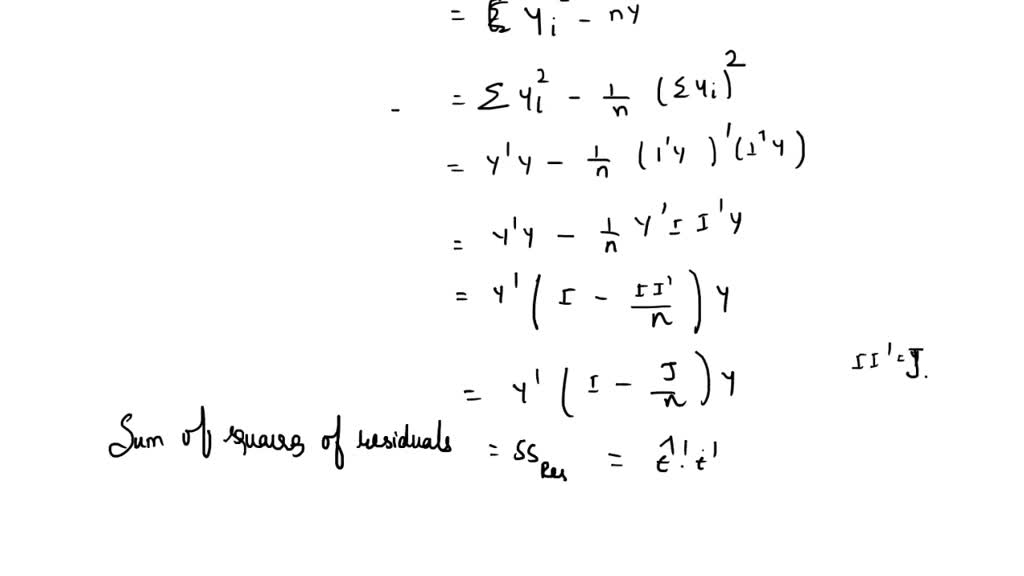 = Σ Yi² - nY
= Σ Yi² - 1/n (ΣYi)²
= Y'Y - 1/n (1'Y)'(1'Y)
= Y'Y - 1/n Y'I I'Y
= Y' ( I - II'/n ) Y
= Y' ( I - J/n ) Y II' = J.
Sum of squares of residuals = SS Res =